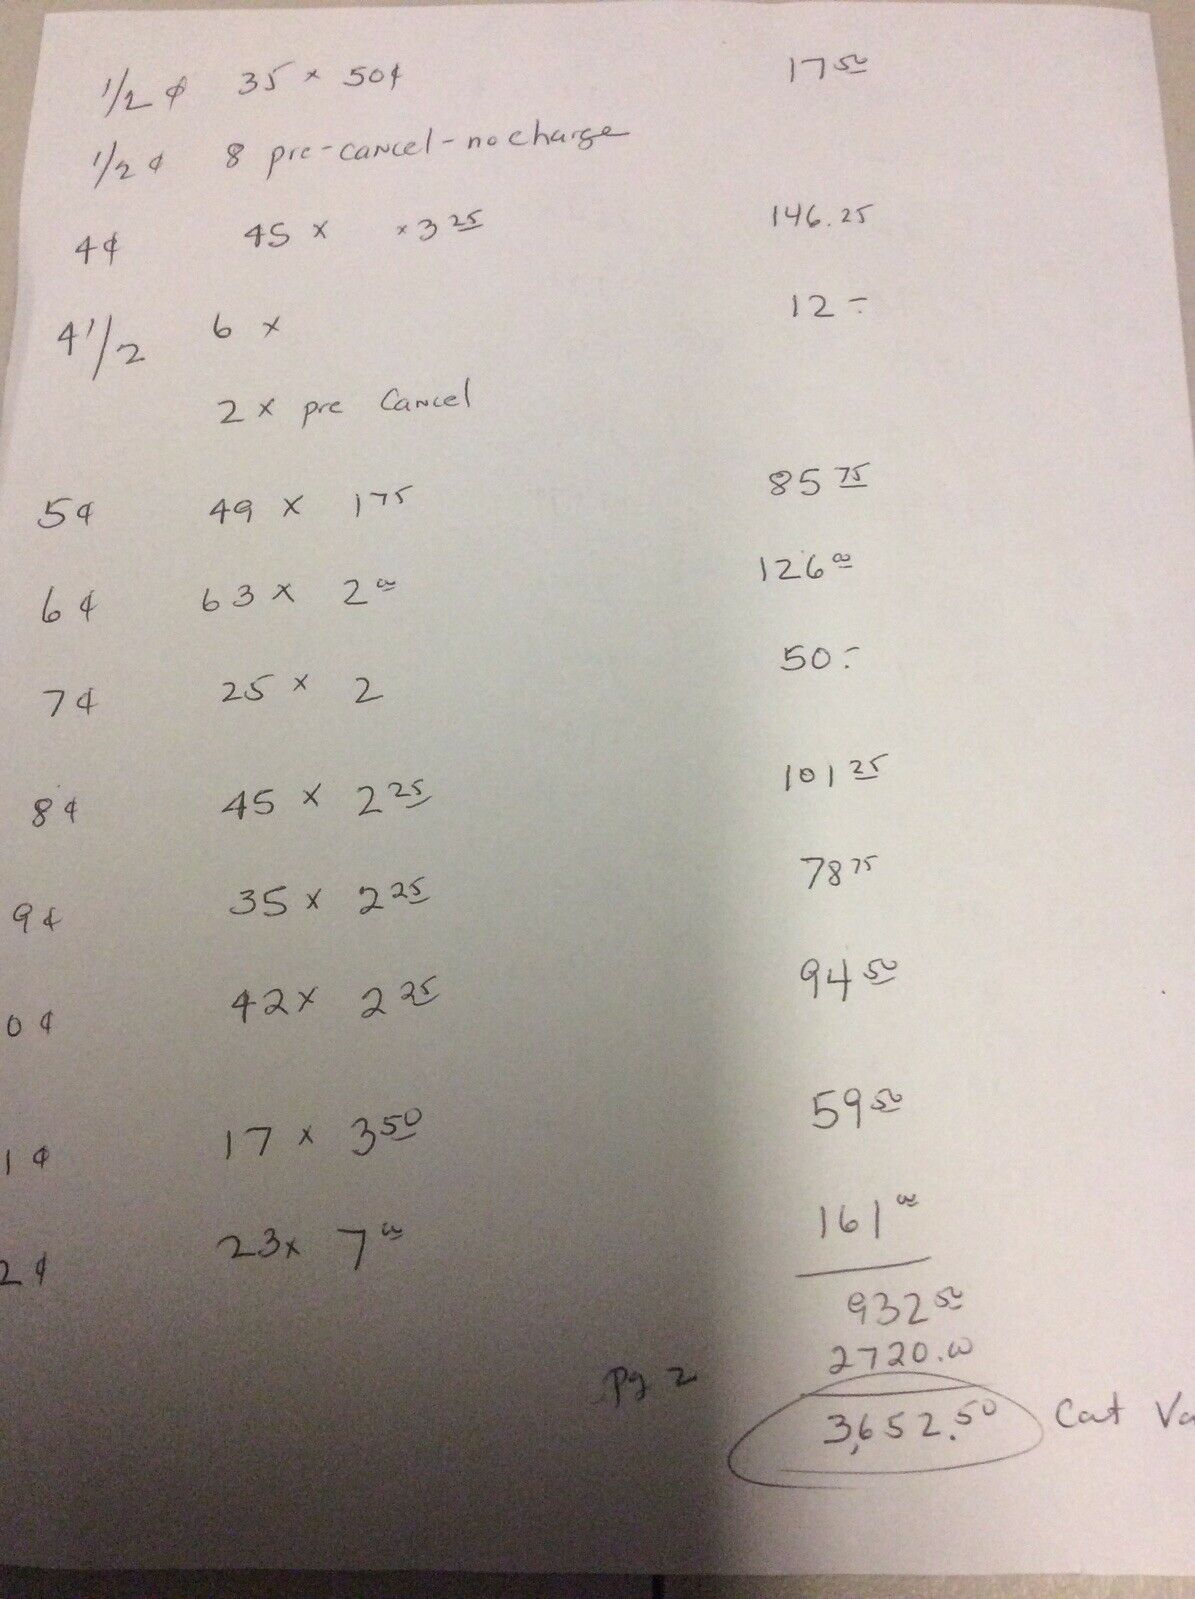 1/2 ¢ 35 × 50¢ 17 50
1/2 ¢ 8 pre-cancel-no charge
4¢ 45 × × 3 25 146.25
4 1/2 6 × 12 -
2 × pre Cancel
5¢ 49 × 1 75 85 75
6¢ 63 × 2 00 126 00
7¢ 25 × 2 50 -
8¢ 45 × 2 25 101 25
9¢ 35 × 2 25 78 75
0¢ 42 × 2 25 94 50
1¢ 17 × 3 50 59 50
2¢ 23 × 7 00 161 00
932 50
pg 2 2720.00
3,652.50 Cat Va